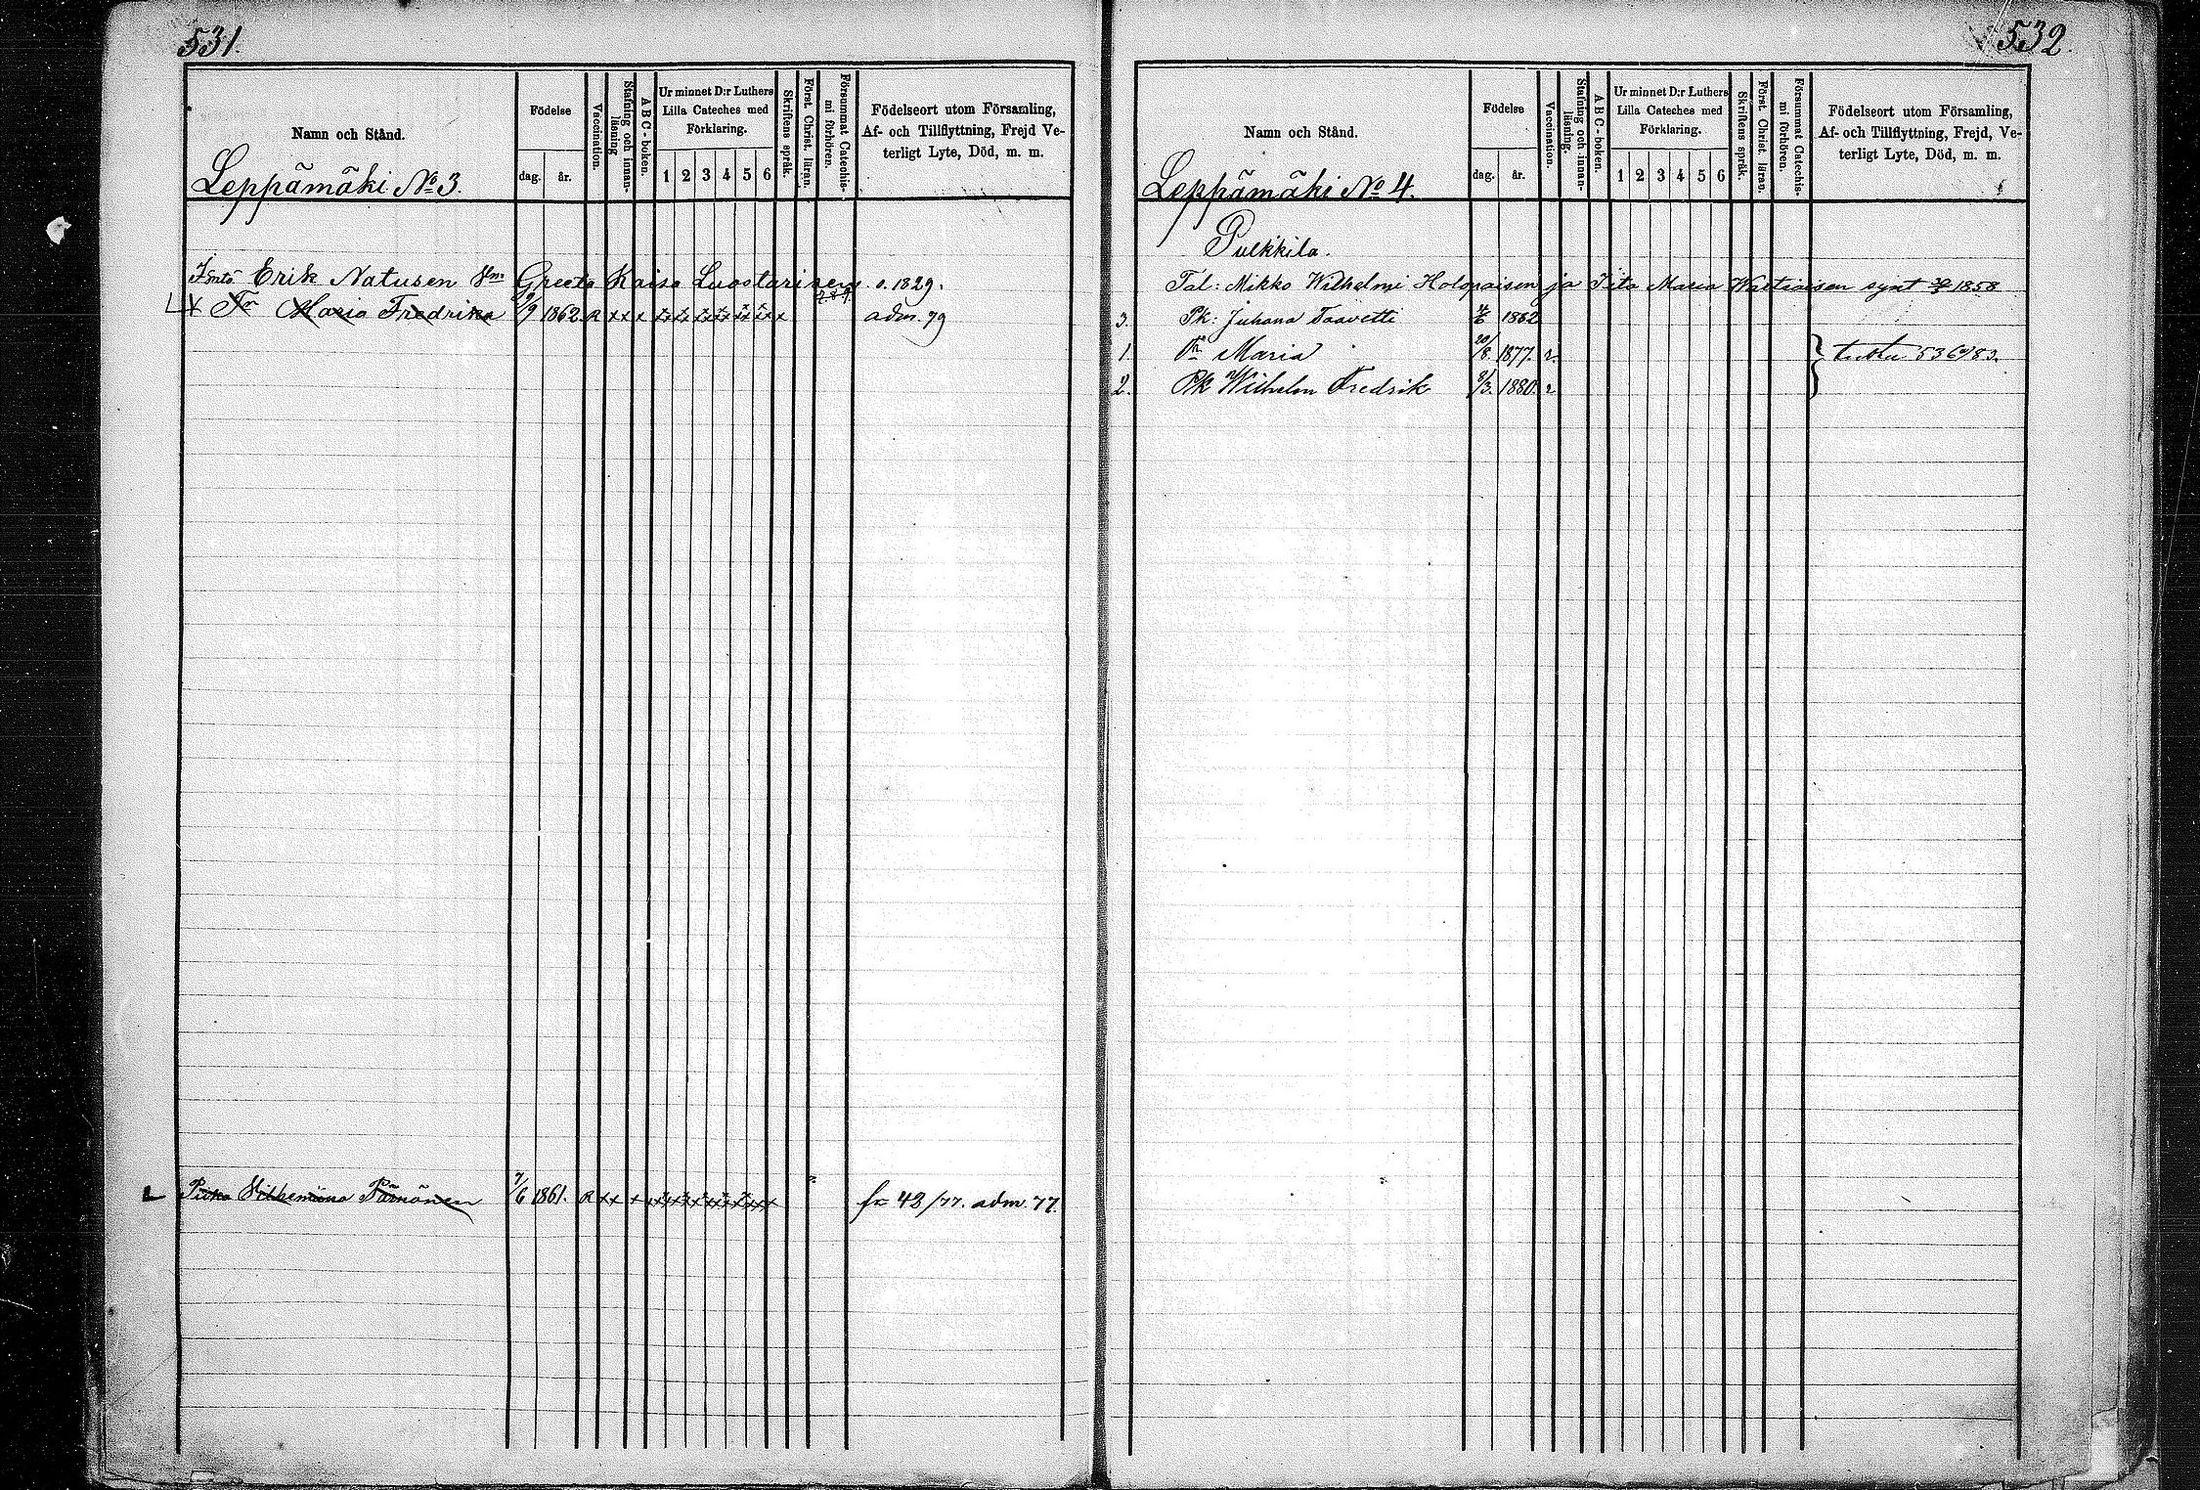 531.
Namn och Stånd.
Leppämäki No 3.
Födelse
dag. år.
Vaccination.
Stafning och innanläsning
ABC-boken.
Ur minnet D:r Luthers
Lilla Cateches med
Förklaring.
1 2 3 4 5 6
Skriftens språk.
Först. Christ. läran.
Försummat Catechismi förhören.
Födelseort utom Församling,
Af- och Tillflyttning, Frejd Ve-
terligt Lyte, Död, m. m.
Erik Natusen Hm Greeta Kaisa Luostarinen s. 1829.
Maria Fredrika 9/9 1862. R xx x adm. 79
Piika Vilhemina Pärnänen 7/6 1861. R xx x fr 42/77. adm. 77.
532.
Namn och Stånd.
Leppämäki No 4.
Födelse
dag. år.
Vaccination.
Stafning och innan-läsning.
ABC-boken.
Ur minnet D:r Luthers
Lilla Cateches med
Förklaring.
1 2 3 4 5 6
Skriftens språk.
Först. Christ. läran.
Försummat Catechis-mi förhören.
Födelseort utom Församling,
Af- och Tillflyttning, Frejd, Ve-
terligt Lyte, Död, m. m.
Pulkkila.
Tal: Mikko Wilhelmi Holopaisen ja Iita Maria Wartiaisen synt 1858
3. Pk: Juhana Taavetti 1882
1. Tr Maria 20/8. 1877. r. } 536/83.
2. Pk Wilhelm Fredrik 8/3. 1880. r